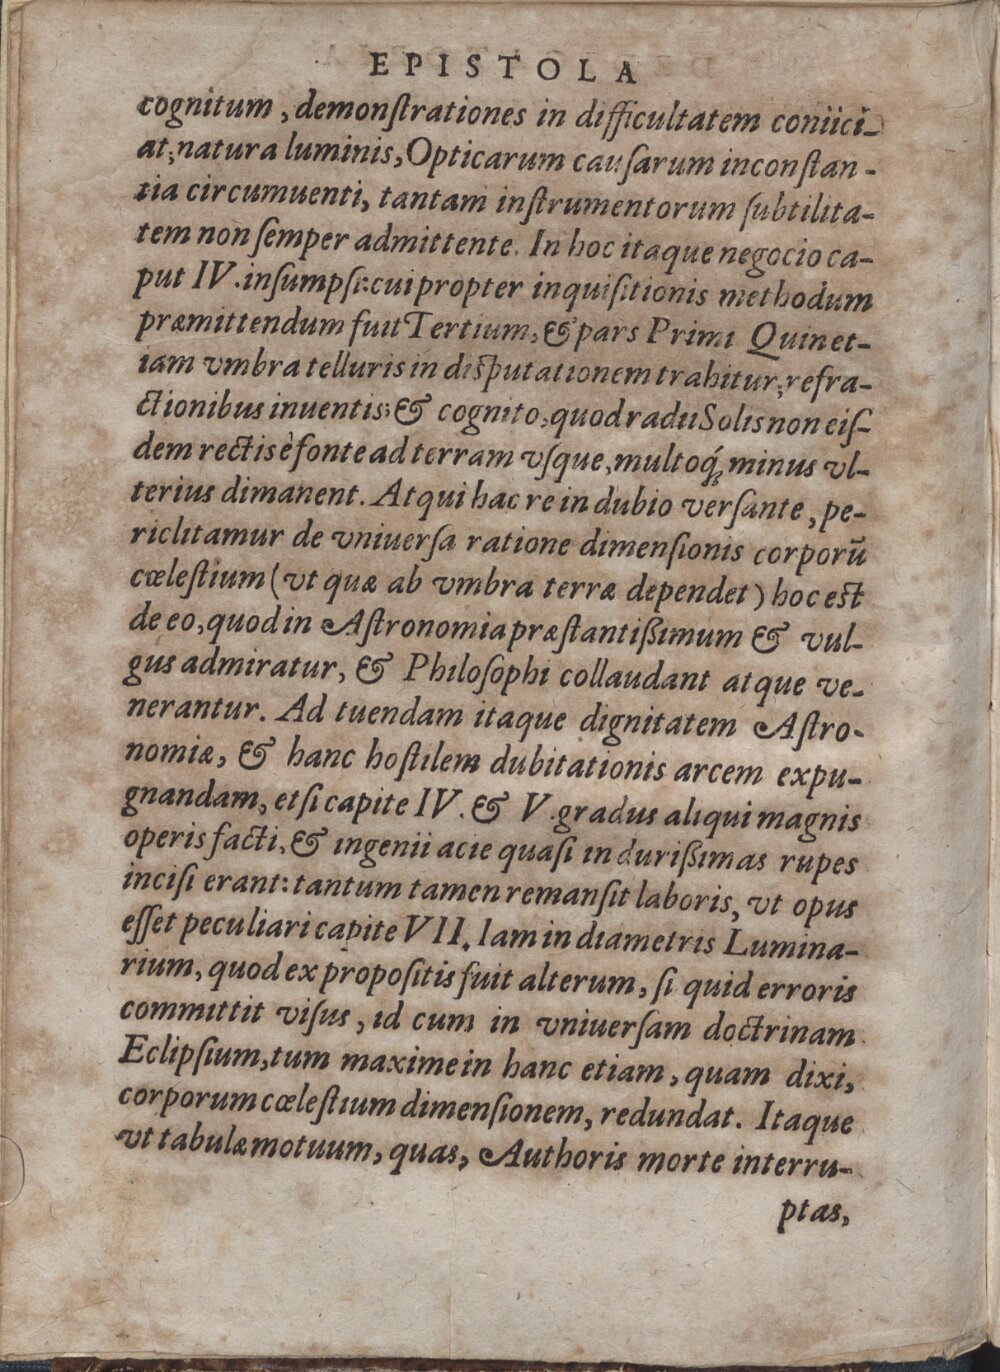 EPISTOLA
cognitum, demonſtrationes in difficultatem coniici-
at; natura luminis, Opticarum cauſarum inconſtan-
tia circumuenti, tantam inſtrumentorum ſubtilita-
tem non ſemper admittente. In hoc itaque negocio ca-
put IV. inſumpſi: cui propter inquiſitionis methodum
præmittendum fuit Tertium, & pars Primi. Quinet-
iam vmbra telluris in diſputationem trahitur, refra-
ctionibus inuentis; & cognito, quod radii Solis non eiſ-
dem rectis è fonte ad terram vſque, multoq́; minus vl-
terius dimanent. Atqui hac re in dubio verſante, pe-
riclitamur de vniuerſa ratione dimenſionis corporū
cœleſtium (vt quæ ab vmbra terræ dependet) hoc eſt
de eo, quod in Aſtronomia præſtantiſſimum & vul-
gus admiratur, & Philoſophi collaudant atque ve-
nerantur. Ad tuendam itaque dignitatem Aſtro-
nomiæ, & hanc hoſtilem dubitationis arcem expu-
gnandam, etſi capite IV. & V. gradus aliqui magnis
operis facti, & ingenii acie quaſi in duriſſimas rupes
inciſi erant: tantum tamen remanſit laboris, vt opus
eſſet peculiari capite VII. Iam in diametris Lumina-
rium, quod ex propoſitis fuit alterum, ſi quid erroris
committit viſus, id cum in vniuerſam doctrinam
Eclipſium, tum maxime in hanc etiam, quam dixi,
corporum cœleſtium dimenſionem, redundat. Itaque
vt tabulæ motuum, quas, Authoris morte interru-
ptas,